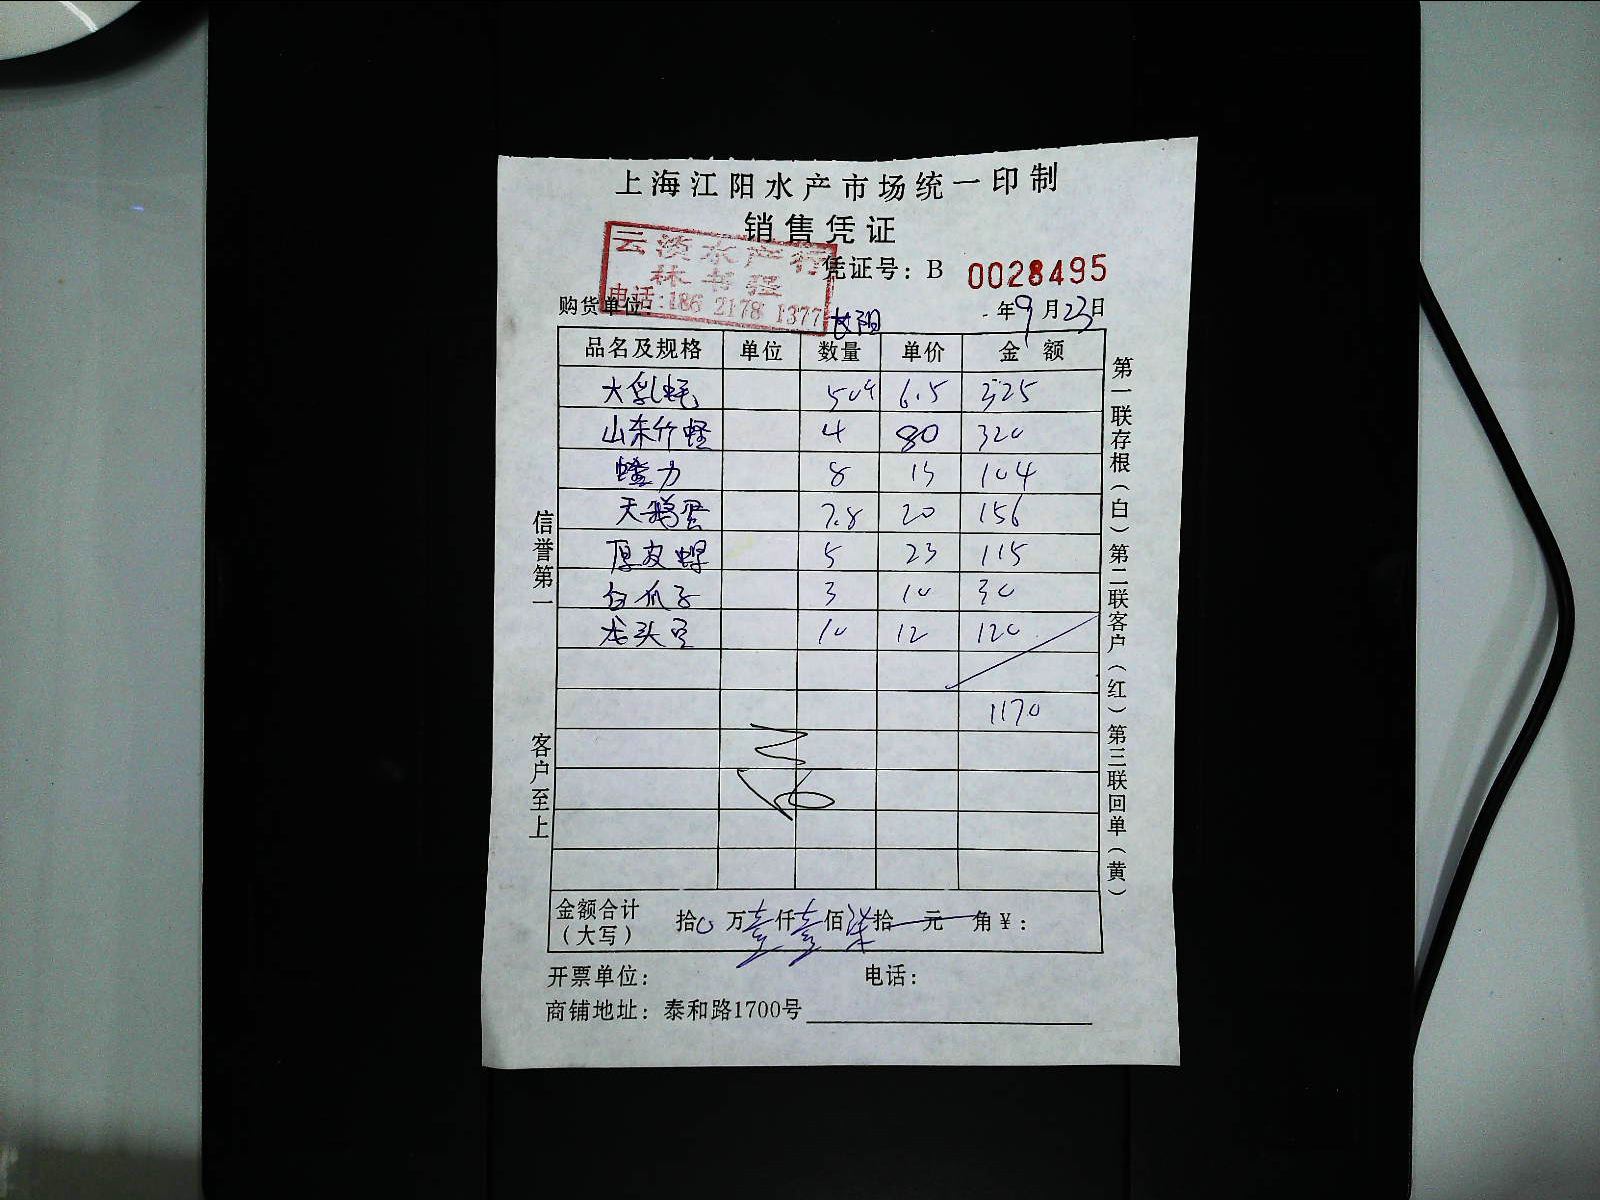 上海江阳水产市场统一印制
销售凭证
云 水产行
林 程
电话:186 2178 1377
凭证号：B 0028495
购货单位： 长阳 年9月23日
品名及规格 单位 数量 单价 金额
大乳蚝 50个 6.5 325
山东竹蛏 4 80 320
蛏力 8 13 104
天鹅蛋 7.8 20 156
厚皮蟹 5 23 115
白瓜子 3 10 30
龙头豆 10 12 120
1170
信誉第一
客户至上
第一联存根（白）第二联客户（红）第三联回单（黄）
金额合计（大写） 拾0万壹仟壹佰柒拾元角￥：
开票单位： 电话：
商铺地址：泰和路1700号